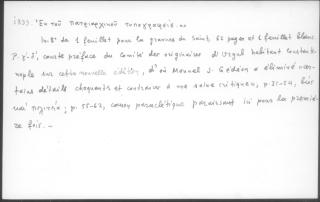 1899. Ἐκ τοῦ πατριαρχικοῦ τυπογραφείου. —
In-8° de 1 feuillet pour la gravure du Saint, 63 pages et 1 feuillet blanc
P. γ'-δ', courte préface du Comité des originaires d' habitant Constanti-
nople sur cette nouvelle édition, d'où Manuel J. Gédéon a éliminé cer-
tains détails choquants et contraires à une saine critique; p. 31-54,
καὶ ; p. 55-63, canon paraclétique paraissant ici pour la premiè-
re fois. —